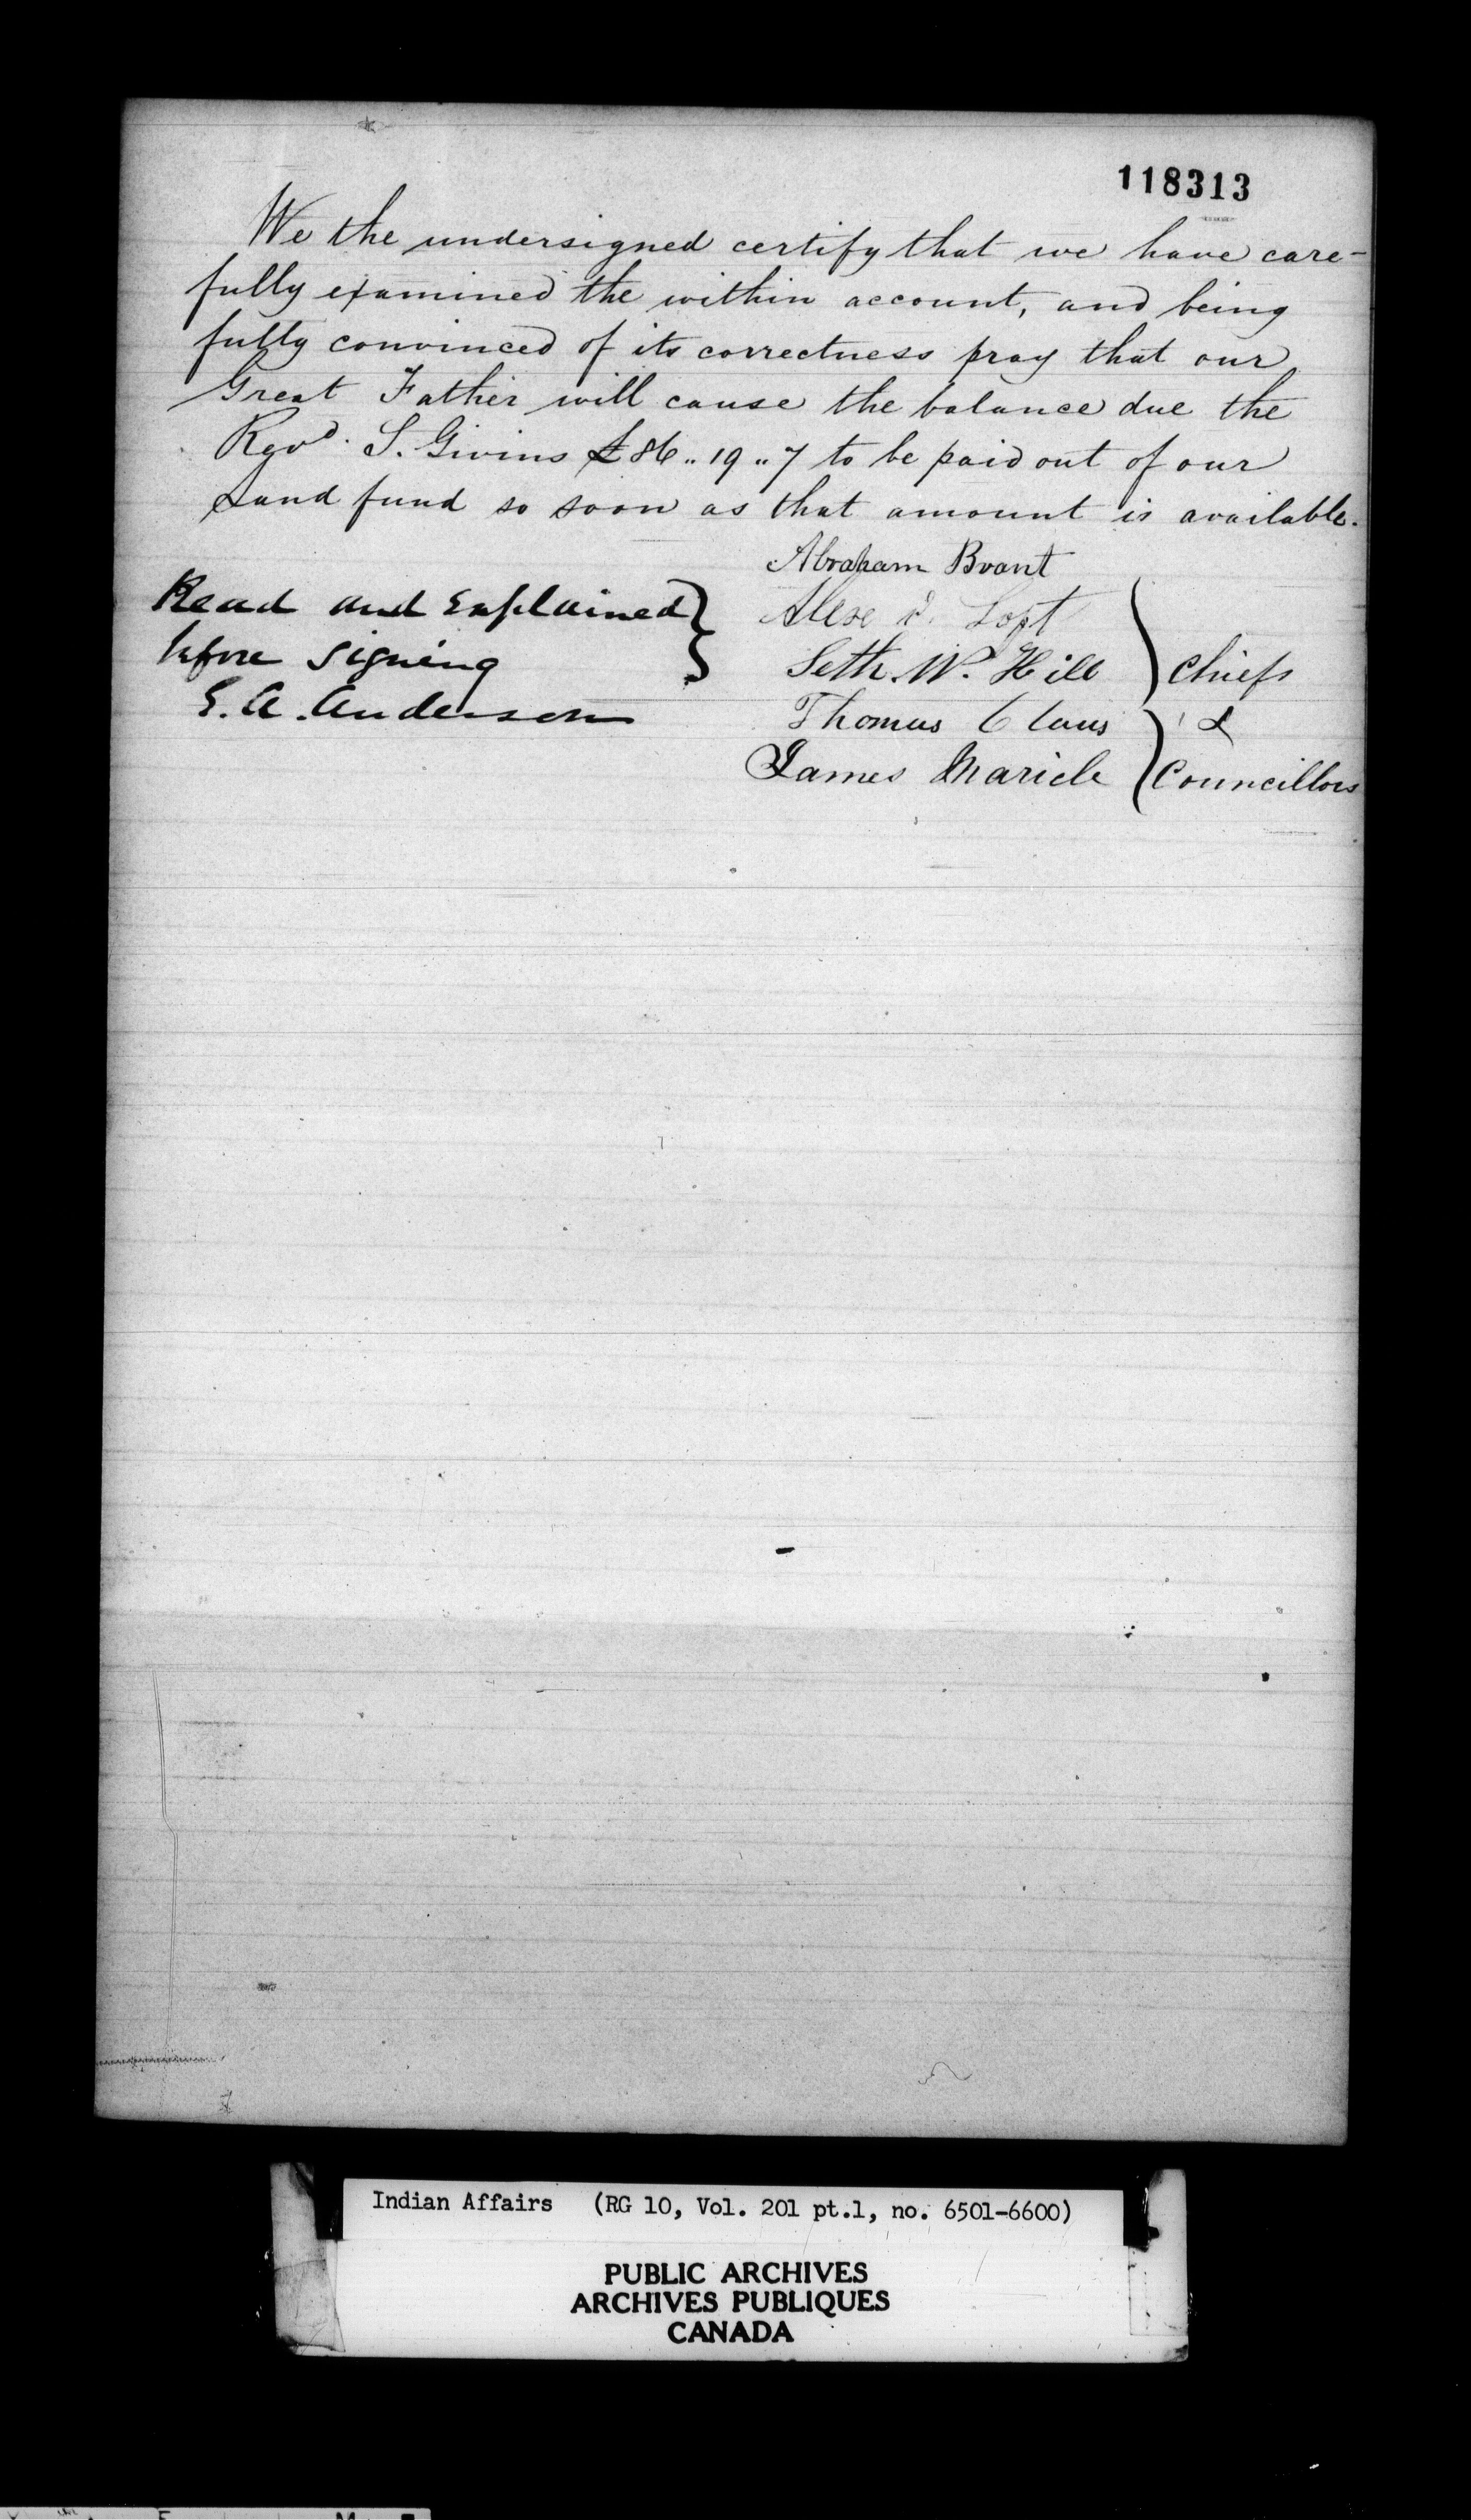 118313
We the undersigned certify that we have care-
fully examined the within account, and being
fully convinced of its correctness pray that our
Great Father will cause the balance due the
Revd. S. Givins £86..19..7 to be paid out of our
Land fund so soon as that amount is available.
Abraham Brant
Read and Explained
before signing
E. A. Anderson
Loft
Seth. W. Hill
Thomas Claus
James Maricle
Chiefs
&
Councillors
Indian Affairs (RG 10, Vol. 201 pt.1, no. 6501-6600)
PUBLIC ARCHIVES
ARCHIVES PUBLIQUES
CANADA